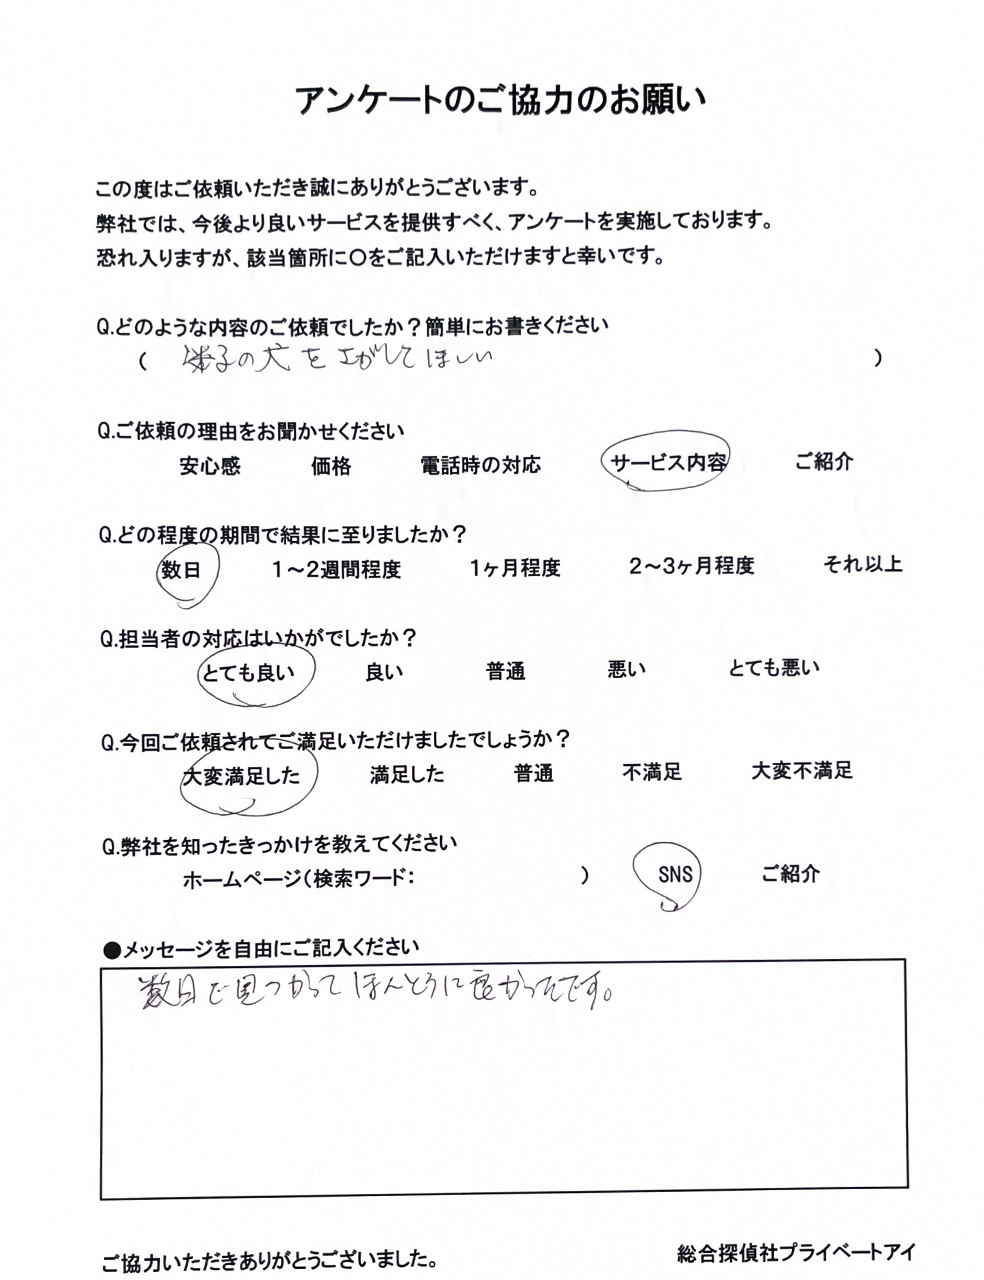 アンケートのご協力のお願い
この度はご依頼いただき誠にありがとうございます。
弊社では、今後より良いサービスを提供すべく、アンケートを実施しております。
恐れ入りますが、該当箇所に〇をご記入いただけますと幸いです。
Q.どのような内容のご依頼でしたか？簡単にお書きください
( 迷子の犬をさがしてほしい )
Q.ご依頼の理由をお聞かせください
安心感 価格 電話時の対応 サービス内容 ご紹介
Q.どの程度の期間で結果に至りましたか？
数日 1～2週間程度 1ヶ月程度 2～3ヶ月程度 それ以上
Q.担当者の対応はいかがでしたか？
とても良い 良い 普通 悪い とても悪い
Q.今回ご依頼されてご満足いただけましたでしょうか？
大変満足した 満足した 普通 不満足 大変不満足
Q.弊社を知ったきっかけを教えてください
ホームページ（検索ワード： ） SNS ご紹介
●メッセージを自由にご記入ください
数日で見つかってほんとうに良かったです。
ご協力いただきありがとうございました。
総合探偵社プライベートアイ